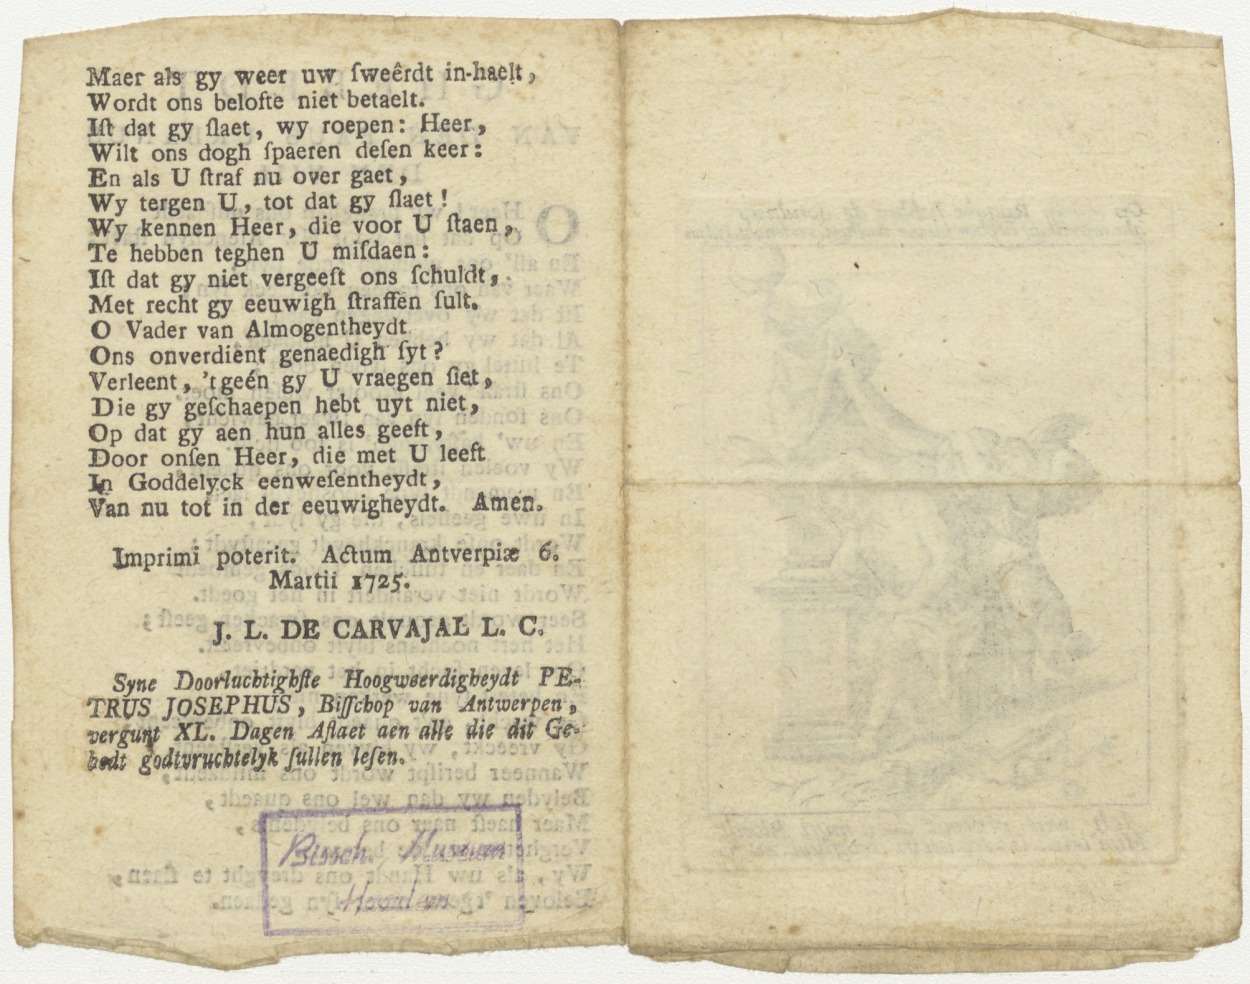 Maer als gy weer uw ſweêrdt in-haelt,
Wordt ons belofte niet betaelt.
Iſt dat gy ſlaet, wy roepen: Heer,
Wilt ons dogh ſpaeren deſen keer:
En als U ſtraf nu over gaet,
Wy tergen U, tot dat gy ſlaet!
Wy kennen Heer, die voor U ſtaen,
Te hebben teghen U miſdaen:
Iſt dat gy niet vergeeſt ons ſchuldt,
Met recht gy eeuwigh ſtraffen ſult.
O Vader van Almogentheydt
Ons onverdient genaedigh ſyt?
Verleent, 'tgeén gy U vraegen ſiet,
Die gy geſchaepen hebt uyt niet,
Op dat gy aen hun alles geeft,
Door onſen Heer, die met U leeft
In Goddelyck eenweſentheydt,
Van nu tot in der eeuwigheydt. Amen.
Imprimi poterit. Actum Antverpiæ 6.
Martii 1725.
J. L. DE CARVAJAL L. C.
Syne Doorluchtighſte Hoogweerdigheydt PE-
TRUS JOSEPHUS, Biſſchop van Antwerpen,
vergunt XL. Dagen Aflaet aen alle die dit Ge-
bedt godtvruchtelyk ſullen leſen.
Bissch. Museum
Haarlem